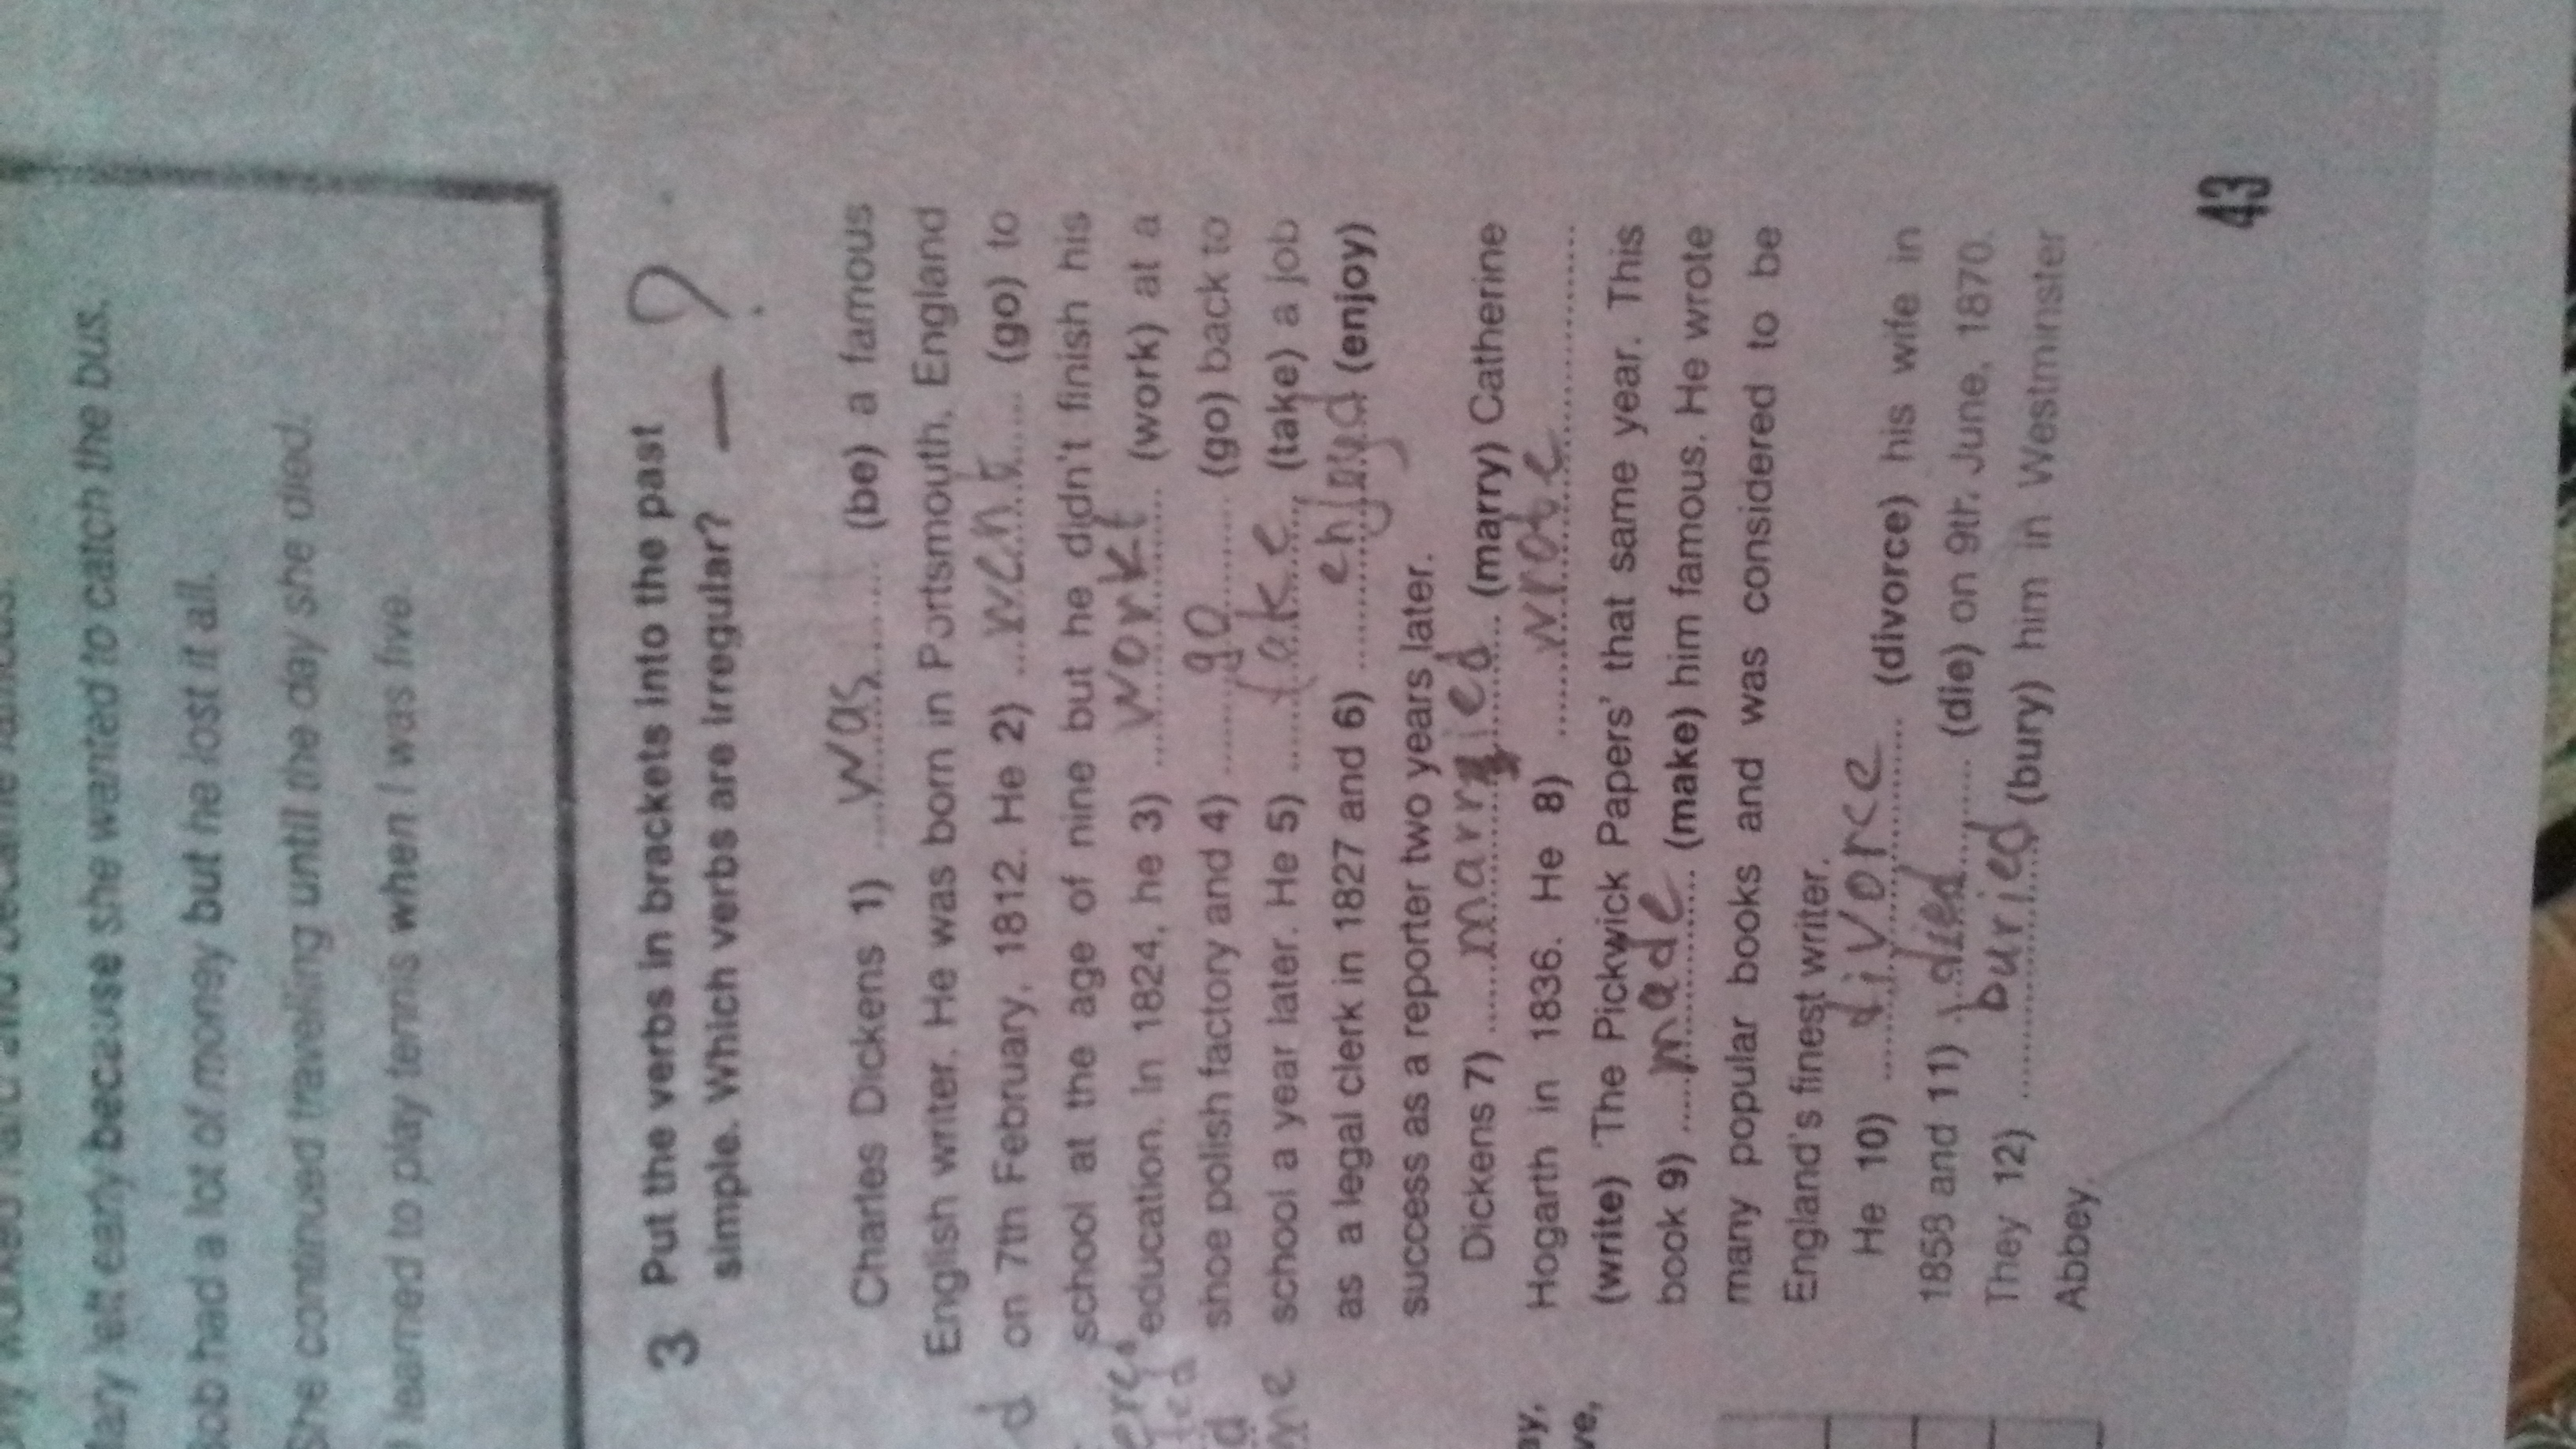 lary left early because she wanted to catch the bus.
ob had a lot of money but he lost it all.
he continued travelling until the day she died.
learned to play tennis when I was five.
3 Put the verbs in brackets into the past
simple. Which verbs are irregular? — ?
Charles Dickens 1) was (be) a famous
English writer. He was born in Portsmouth, England
on 7th February, 1812. He 2) went (go) to
school at the age of nine but he didn't finish his
education. In 1824, he 3) workt (work) at a
shoe polish factory and 4) go (go) back to
school a year later. He 5) take (take) a job
as a legal clerk in 1827 and 6) enjoyd (enjoy)
success as a reporter two years later.
Dickens 7) married (marry) Catherine
Hogarth in 1836. He 8) wrote
(write) 'The Pickwick Papers' that same year. This
book 9) made (make) him famous. He wrote
many popular books and was considered to be
England's finest writer.
He 10) divorce (divorce) his wife in
1858 and 11) died (die) on 9th June, 1870.
They 12) buried (bury) him in Westminster
Abbey.
43